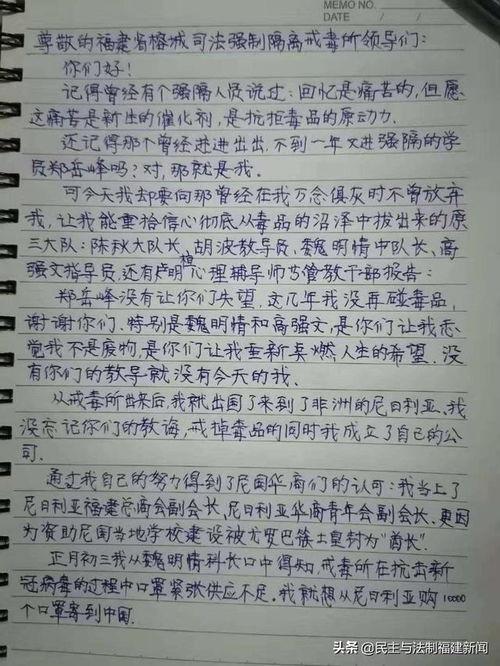 MEMO NO.
DATE / /
尊敬的福建省榕城司法强制隔离戒毒所领导们:
你们好!
记得曾经有个强隔人员说过:回忆是痛苦的,但愿
这痛苦是新生的催化剂,是抗拒毒品的原动力.
还记得那个曾经进进出出,不到一年又进强隔的学
员郑岳峰吗?对,那就是我.
可今天我却要向那曾经在我万念俱灰时不曾放弃
我,让我能重拾信心彻底从毒品的沼泽中拔出来的原
三大队:陈秋大队长、胡波教导员、魏明情中队长、高
强文指导员,还有卢明想心理辅导师等管教干部报告:
郑岳峰没有让你们失望.这几年我没再碰毒品,
谢谢你们.特别是魏明情和高强文,是你们让我感
觉我不是废物,是你们让我重新点燃人生的希望.没
有你们的教导就没有今天的我.
从戒毒所出来后,我就出国了来到了非洲的尼日利亚.我
没忘记你们的教诲,戒掉毒品的同时我成立了自己的公
司.
通过我自己的努力得到了尼国华商们的认可:我当上了
尼日利亚福建总商会副会长、尼日利亚华商青年会副会长.更因
为资助尼国当地学校建设被尤罗巴族土皇封为"酋长".
正月初三我从魏明情科长口中得知,戒毒所在抗击新
冠病毒的过程中口罩紧张供应不足.我就想从尼日利亚购10000
个口罩寄到中国.
头条 @民主与法制福建新闻